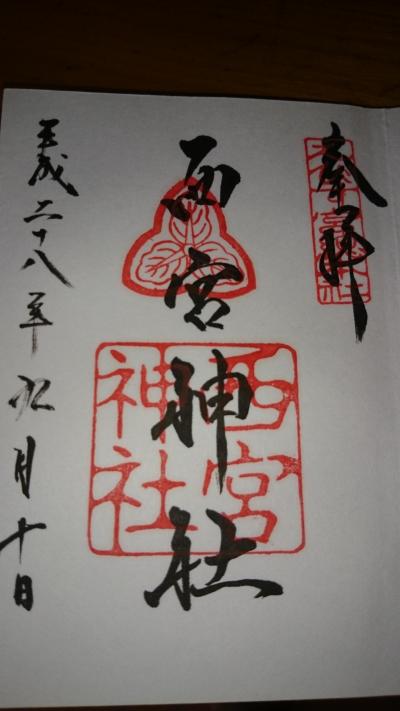 奉拝
西宮神社
西宮
神社
平成二十八年九月十日